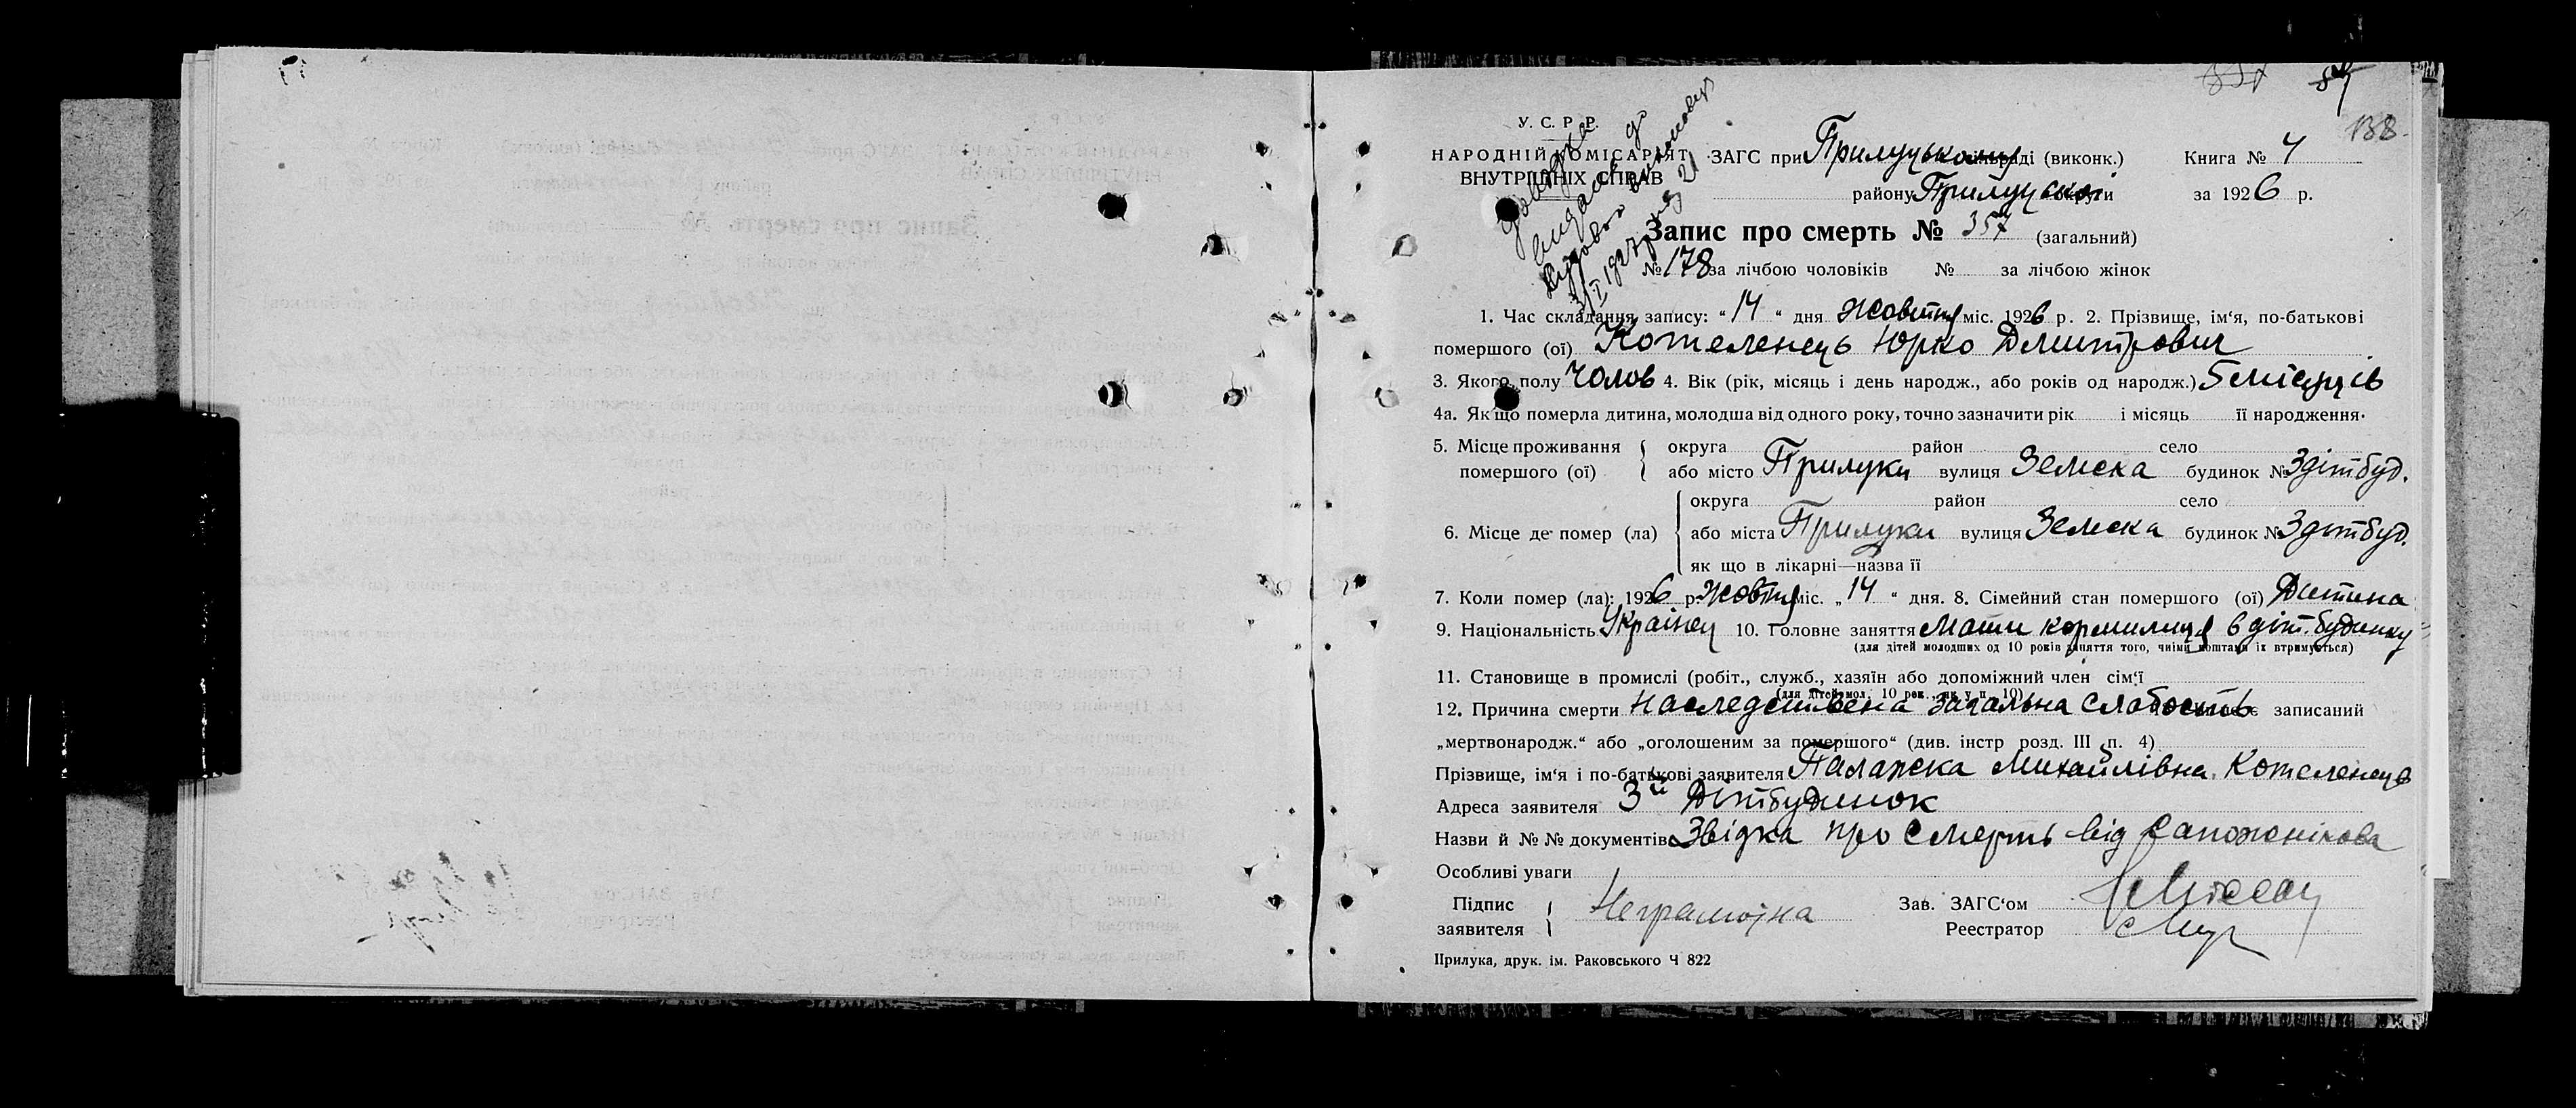 138
У. С. Р. Р.
НАРОДНІЙ КОМІСАРІЯТ
ВНУТРІШНІХ СПРАВ
ЗАГС при Прилуцькому раді (виконк.) Книга № 4
району Прилуцької округи за 1926 р.
Довідка
видана до
3/I 1927 р.
Запис про смерть № 357 (загальний)
№ 178 за лічбою чоловіків № за лічбою жінок
1. Час складання запису: “ 14 “ дня жовтня міс. 1926 р. 2. Прізвище, ім‘я, по-батькові
помершого (ої) Котеленець Юрко Дмитрович
3. Якого полу Чолов 4. Вік (рік, місяць і день народж., або років од народж.) 5 місяців
4а. Як що померла дитина, молодша від одного року, точно зазначити рік і місяць її народження.
5. Місце проживання помершого (ої) { округа район село
або місто Прилуки вулиця Земска будинок № 3 дітбуд.
6. Місце де помер (ла) { округа район село
або міста Прилуки вулиця Земска будинок № 3 дітбуд.
як що в лікарні—назва її
7. Коли помер (ла): 1926 р. Жовтня міс. „ 14 “ дня. 8. Сімейний стан помершого (ої) Дитина
9. Національність Українец 10. Головне заняття Мати кормилиця в діт. будинку
(для дітей молодших од 10 років заняття того, чиїми коштами їх втримується)
11. Становище в промислі (робіт., служб., хазяїн або допоміжний член сім‘ї
(для дітей мол. 10 рок., як у п. 10)
12. Причина смерти Наследствена загальна слабость записаний
„мертвонародж.“ або „оголошеним за помершого“ (див. інстр розд. III п. 4)
Прізвище, ім‘я і по-батькові заявителя Палажка Михайлівна Котеленець
Адреса заявителя 3й Дітбудинок
Назви й № № документів Звідка про смерть від Сапожнікова
Особливі уваги
Підпис заявителя { Неграмотна
Зав. ЗАГС‘ом
Реестратор
Прилука, друк. ім. Раковського Ч 822